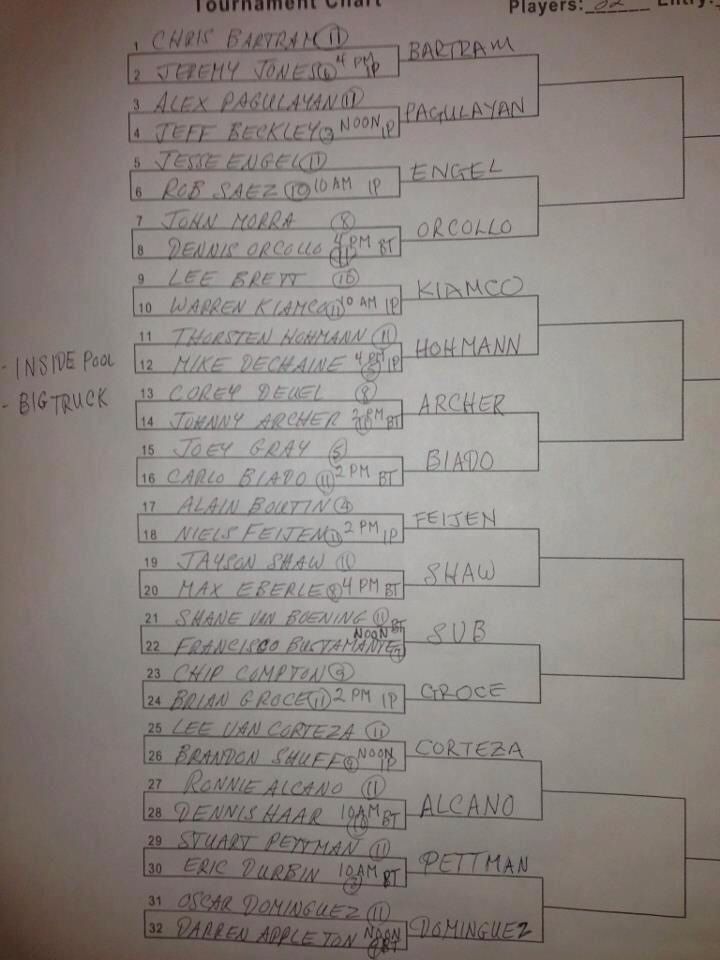 Tournament Chart
Players: 32 Entry:
1 CHRIS BARTRAM (11)
BARTRAM
2 JEREMY JONES 4 PM IP
3 ALEX PAGULAYAN (11)
PAGULAYAN
4 JEFF BECKLEY (3) NOON IP
5 JESSE ENGEL (11)
ENGEL
6 ROB SAEZ (10) 10 AM IP
7 JOHN MORRA (8)
ORCOLLO
8 DENNIS ORCOLLO (11) 4 PM BT
9 LEE BRETT (10)
KIAMCO
10 WARREN KIAMCO (11) 10 AM IP
11 THORSTEN HOHMANN (11)
HOHMANN
- INSIDE POOL
12 MIKE DECHAINE 4 PM IP
13 COREY DEUEL (8)
ARCHER
- BIG TRUCK
14 JOHNNY ARCHER (11) 2 PM BT
15 JOEY GRAY (5)
BIADO
16 CARLO BIADO (11) 2 PM BT
17 ALAIN BOUTIN (4)
FEIJEN
18 NIELS FEIJEN (11) 2 PM IP
19 JAYSON SHAW (11)
SHAW
20 MAX EBERLE (8) 4 PM BT
21 SHANE VAN BOENING (11)
SVB
22 FRANCISCO BUSTAMANTE (7) NOON BT
23 CHIP COMPTON (9)
GROCE
24 BRIAN GROCE (11) 2 PM IP
25 LEE VAN CORTEZA (11)
CORTEZA
26 BRANDON SHUFF (9) NOON IP
27 RONNIE ALCANO (11)
ALCANO
28 DENNIS HAAR (10) 10 AM BT
29 STUART PETTMAN (11)
PETTMAN
30 ERIC DURBIN 10 AM BT
31 OSCAR DOMINGUEZ (11)
DOMINGUEZ
32 DARREN APPLETON NOON BT